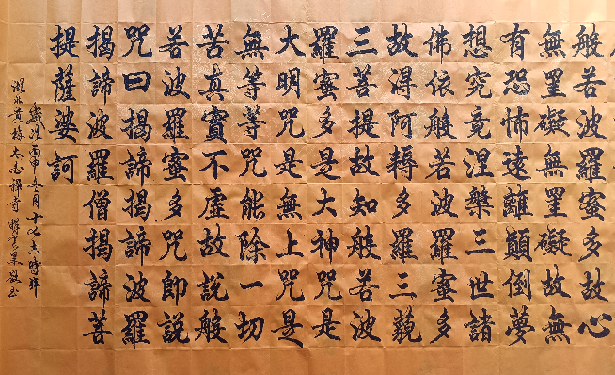 般若波羅蜜多故心
無罣礙無罣礙故無
有恐怖遠離顛倒夢
想究竟涅槃三世諸
佛依般若波羅蜜多
故得阿耨多羅三藐
三菩提故知般若波
羅蜜多是大神咒是
大明咒是無上咒是
無等等咒能除一切
苦真實不虛故說般
若波羅蜜多咒即說
咒曰揭諦揭諦波羅
揭諦波羅僧揭諦菩
提薩婆訶
丙申五月十